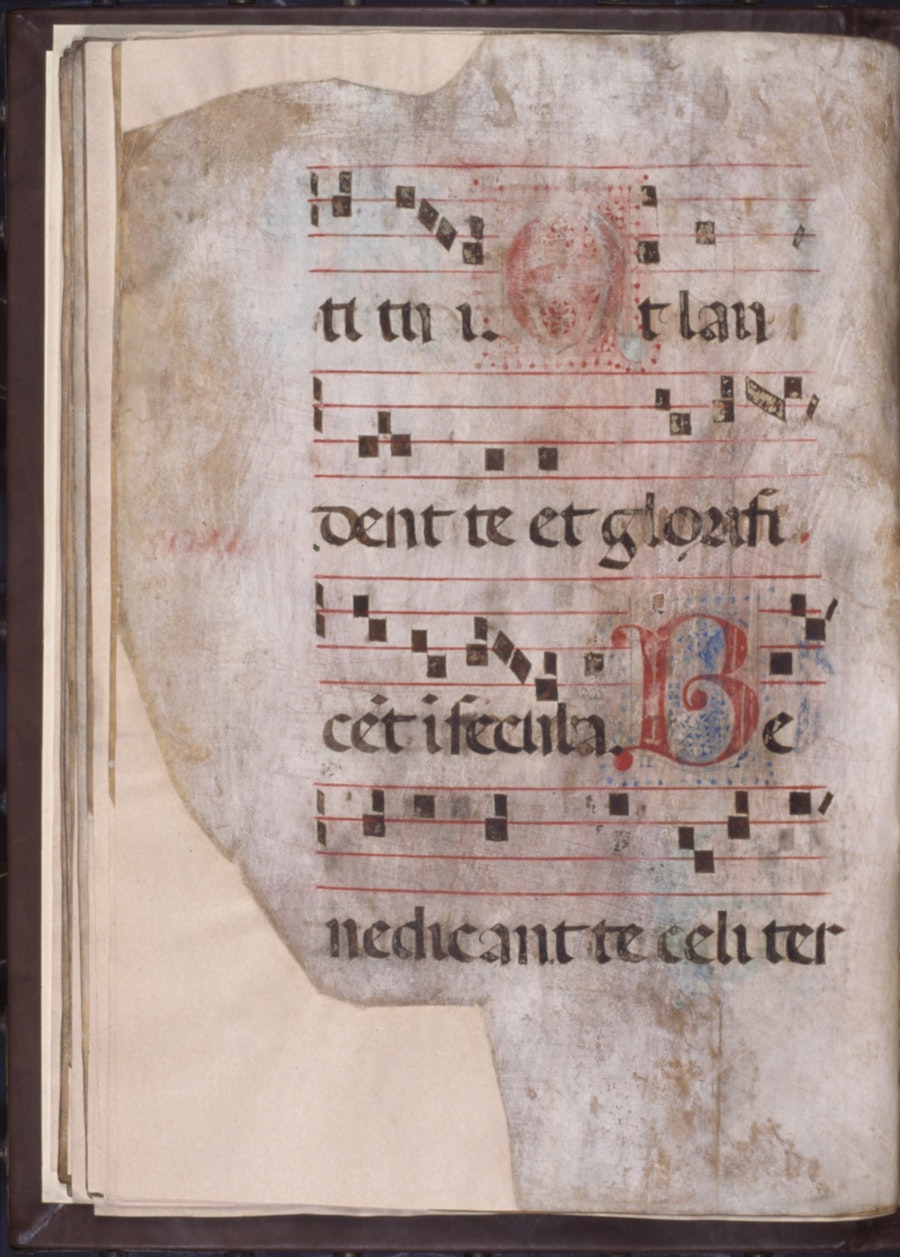 ti tu i. Ut lau
dent te et glorifi
cēt i secula. Be
nedicant te celi ter